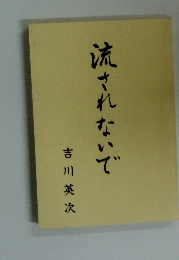 流されないで
吉川英次